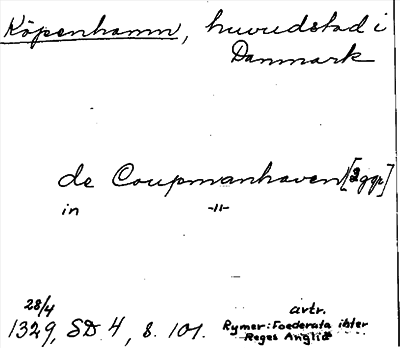 Köpenhamn, huvudstad i
Danmark
de Coupmanhaven [2 ggr]
in -"-
28/4
1329, SD 4, s. 101.
avtr.
Rymer: Foederata inter
Reges Angliæ